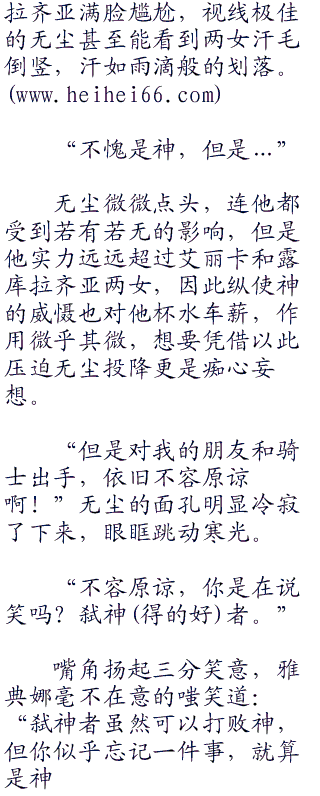 拉齐亚满脸尴尬，视线极佳
的无尘甚至能看到两女汗毛
倒竖，汗如雨滴般的划落。
(www.heihei66.com)
“不愧是神，但是…”
无尘微微点头，连他都
受到若有若无的影响，但是
他实力远远超过艾丽卡和露
库拉齐亚两女，因此纵使神
的威慑也对他杯水车薪，作
用微乎其微，想要凭借以此
压迫无尘投降更是痴心妄
想。
“但是对我的朋友和骑
士出手，依旧不容原谅
啊！”无尘的面孔明显冷寂
了下来，眼眶跳动寒光。
“不容原谅，你是在说
笑吗？弑神(得的好)者。”
嘴角扬起三分笑意，雅
典娜毫不在意的嗤笑道：
“弑神者虽然可以打败神，
但你似乎忘记一件事，就算
是神